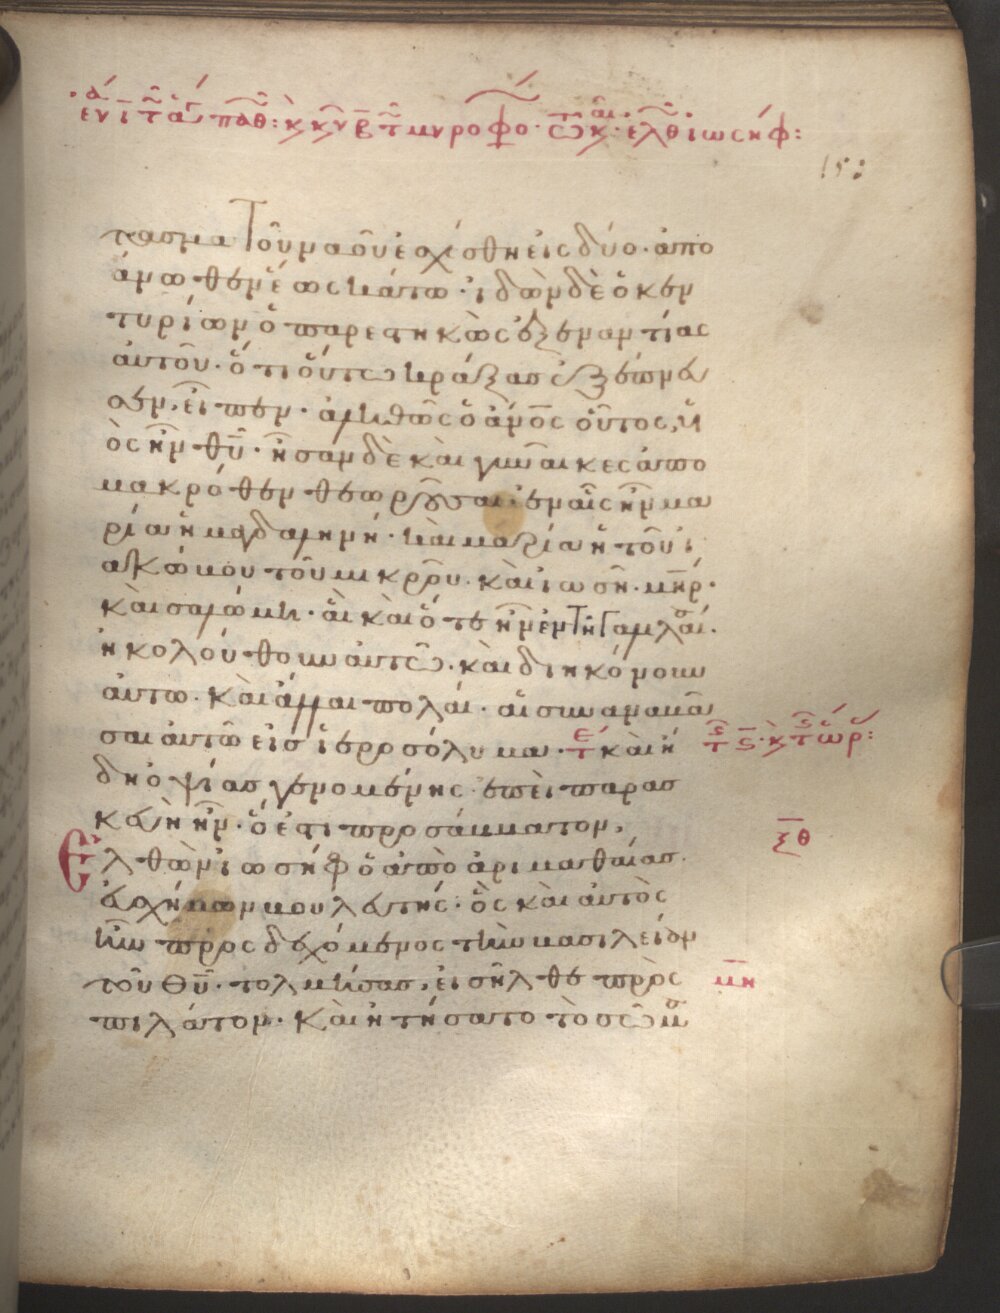 πασμα τοῦ ναοῦ ἐσχίσθη εἰς δύο· ἀπο
ἄνωθεν ἕως κάτω· ἰδὼν δὲ ὁ κεν
τυρίων ὁ παρεστηκὼς ἐξεναντίας
αὐτοῦ· ὅτι οὕτω κράξας ἐξέπνευ
σεν, εἶπεν· ἀληθῶς ὁ ἄν̅ο̅ς οὗτος, υἱ
ὸς ἦν θ̅υ̅· ἦσαν δὲ καὶ γυναικες ἀπο
μακρόθεν θεωροῦσαι· ἐν αἷς ἦν μα
ρία ἡ μαγδαληνή· καὶ μαρία ἡ τοῦ ἰ
ακώβου τοῦ μικροῦ· καὶ ἰωσῆ μ̅η̅ρ·
καὶ σαλώμη· αἳ καὶ ὅτε ἦν ἐν τῇ γαλλαί·
ἠκολούθουν αὐτῶ· καὶ διηκόνουν
αὐτω· καὶ ἄλλαι πολλαί· αἱ συναναβᾶ
σαι αὐτῶ εἰς ἱεροσόλυμα· καὶ ἤ
δη ὀψίας γενομένης· ἐπεὶ παρασ
κευὴ ἦν· ὅ ἐστι προσάββατον,
Ἐλθὼν ἰωσὴφ ὁ ἀπὸ ἀριμαθαίας·
εὐσχήμων βουλευτής· ὃς καὶ αὐτὸς
ἦν προσδεχόμενος τὴν βασιλείαν
τοῦ θ̅υ̅· τολμήσας, εἰσῆλθε πρὸς
μ̅η̅
πιλάτον· καὶ ἠτήσατο τὸ σῶμ